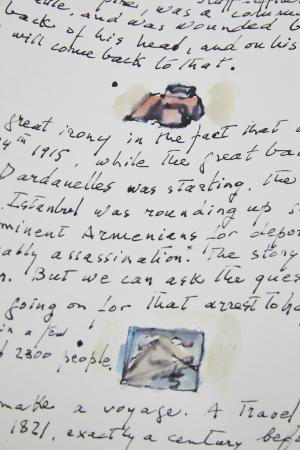 was a comm
and was wounded b
back of his head, and on his
will come back to that.
great irony in the fact that
4th 1915, while the great ba
Dardanelles was starting, the
Istanbul was rounding up
minent Armenians for depor
ally assassination. The story
n. But we can ask the ques
going on for that arrest to ha
in a few
2300 people.
make a voyage. A Travel
1821, exactly a century befo